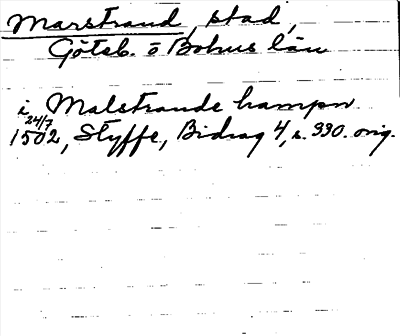 Marstrand, stad,
Göteb. o Bohus län
i Malstrande hampn
24/7
1502, Styffe, Bidrag 4, s. 330. orig.